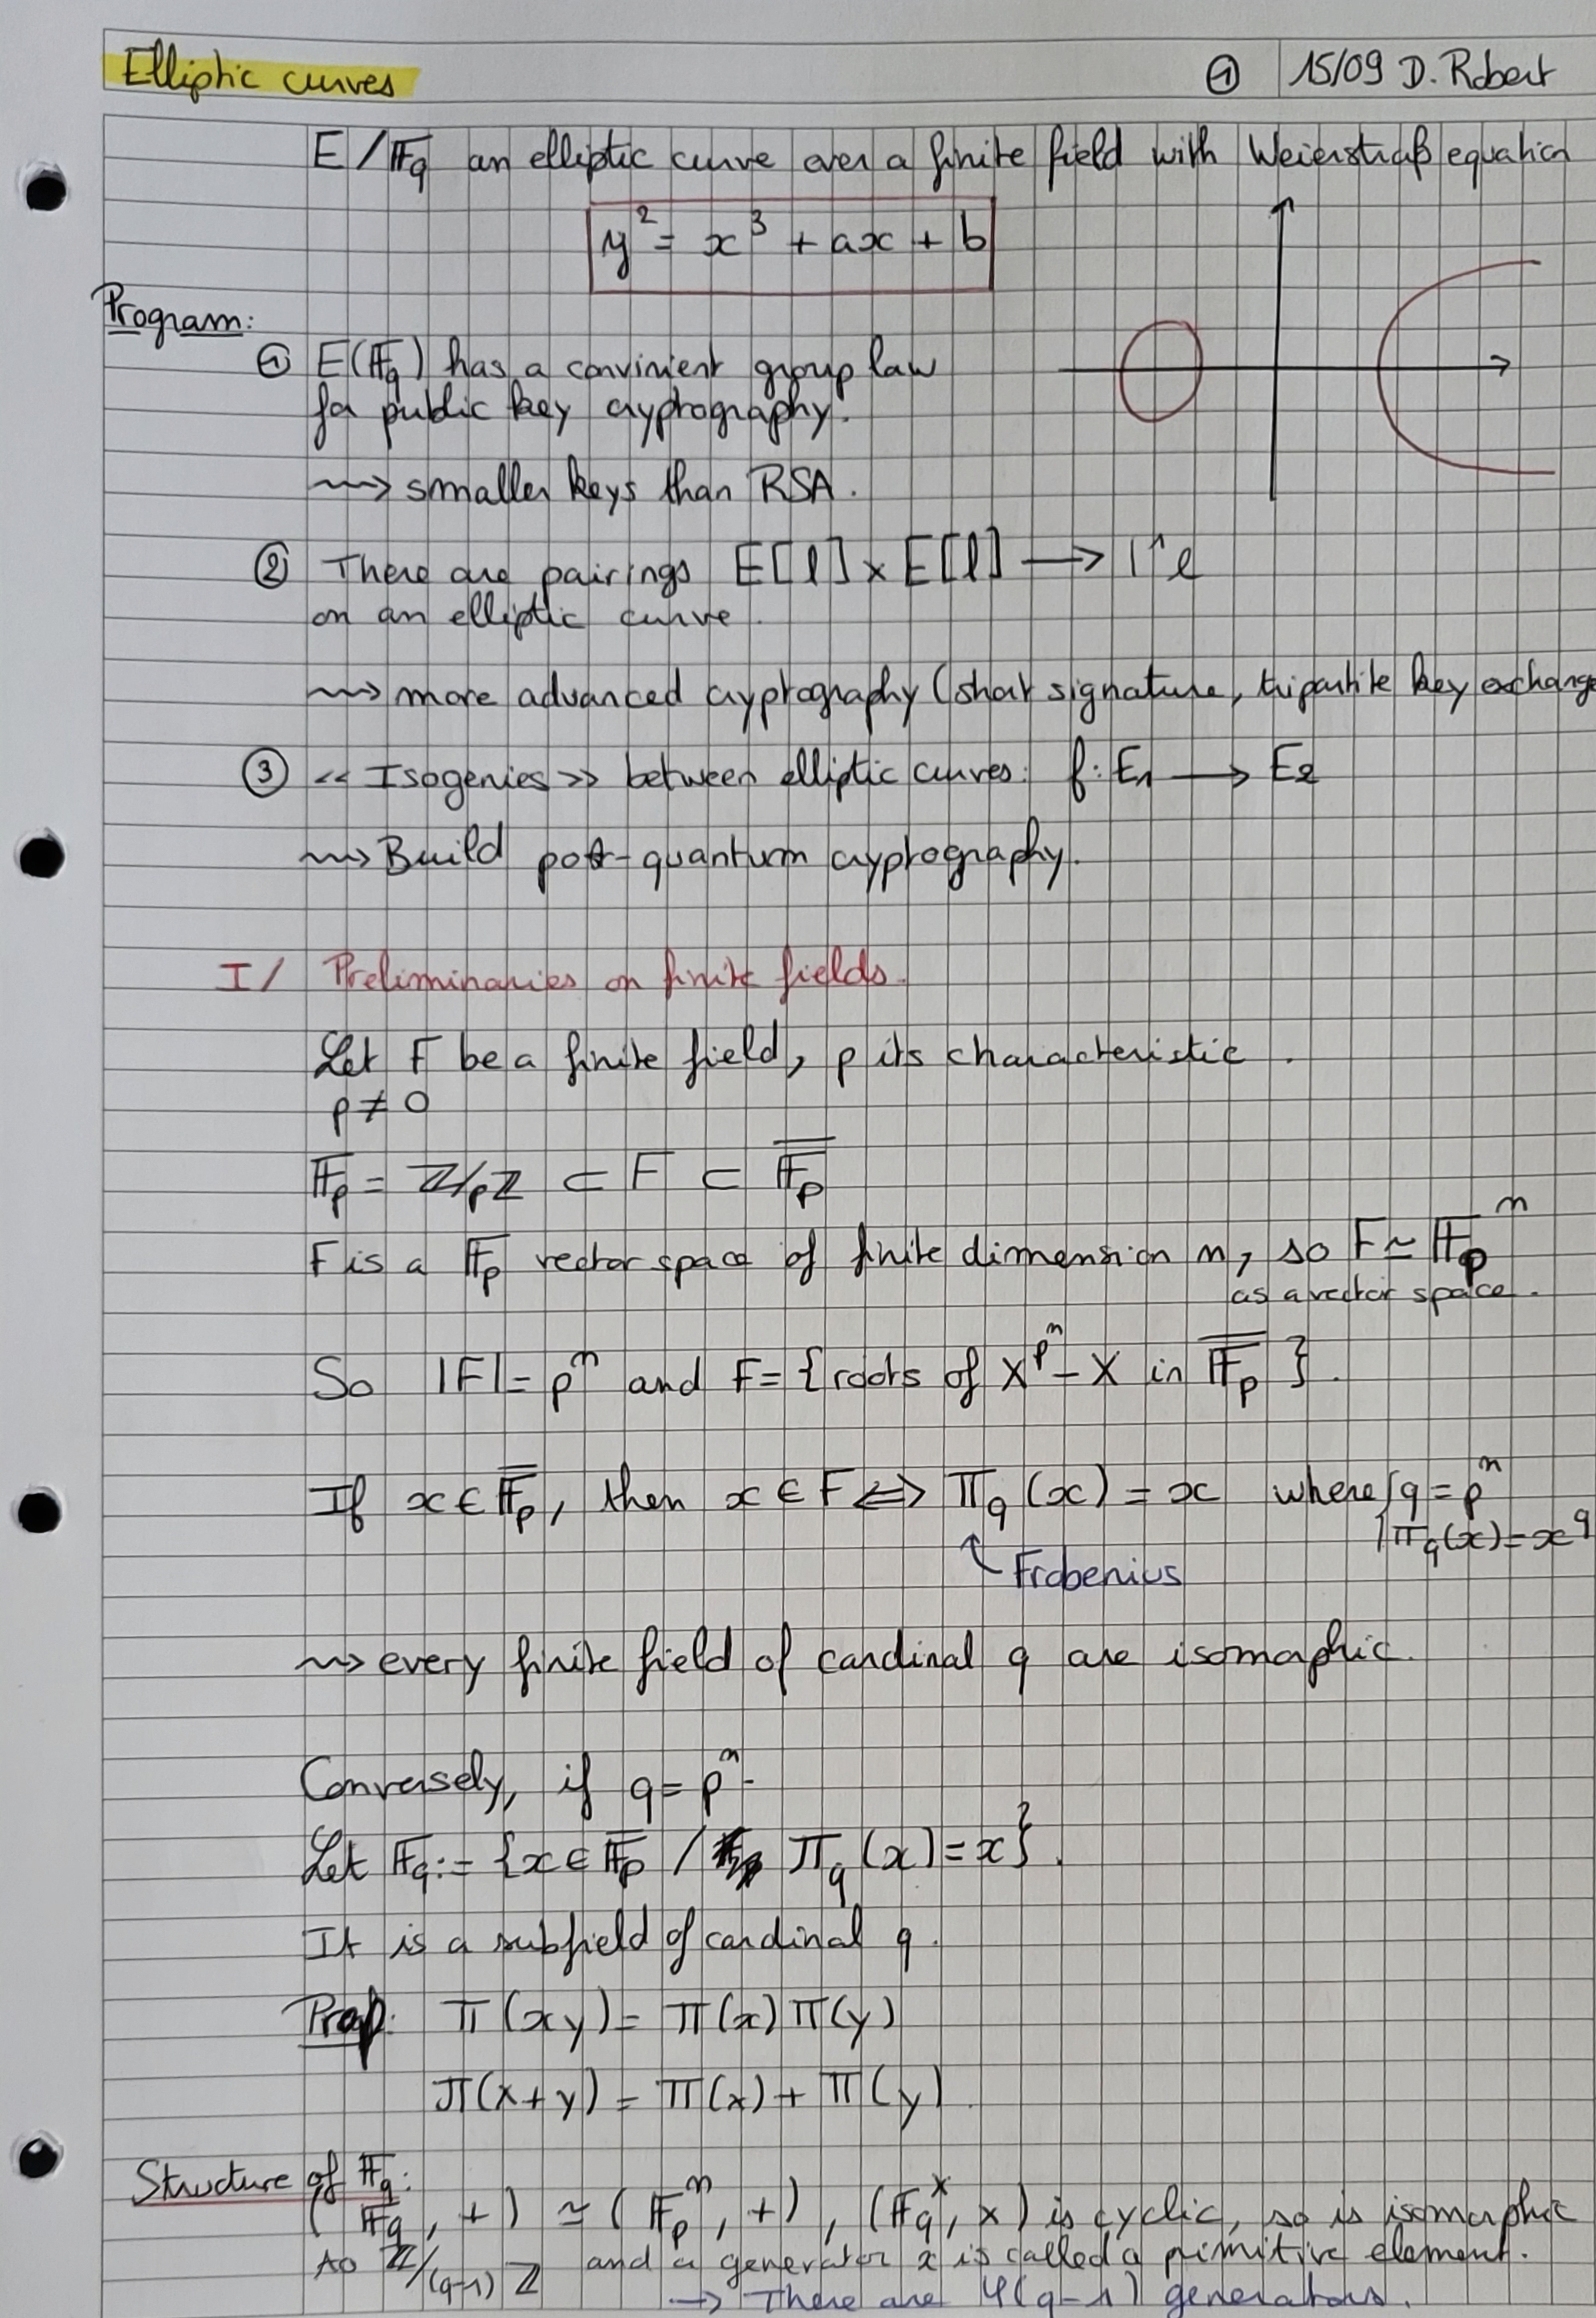 Elliptic curves ① 15/09 D. Robert
E/𝔽q an elliptic curve over a finite field with Weierstraß equation
y² = x³ + ax + b
Program:
① E(𝔽q) has a convinient group law
for public key cryptography.
⇝ smaller keys than RSA.
② There are pairings E[l] × E[l] ⟶ μl
on an elliptic curve.
⇝ more advanced cryptography (short signature, tripartite key exchange
③ << Isogenies >> between elliptic curves: f: E₁ ⟶ E₂
⇝ Build post-quantum cryptography.
I/ Preliminaries on finite fields.
Let F be a finite field, p its characteristic.
p ≠ 0
𝔽p = ℤ/pℤ ⊂ F ⊂ \overline{𝔽p}
F is a 𝔽p vector space of finite dimension n, so F ≃ 𝔽pⁿ
as a vector space.
So |F| = pⁿ and F = {roots of X^{pⁿ} - X in \overline{𝔽p}}.
If x ∈ \overline{𝔽p}, then x ∈ F ⟺ πq(x) = x where { q = pⁿ
πq(x) = x^q
↖ Frobenius
⇝ every finite field of cardinal q are isomorphic.
Conversely, if q = pⁿ.
Let 𝔽q := {x ∈ \overline{𝔽p} / πq(x) = x}.
It is a subfield of cardinal q.
Prop: π(xy) = π(x)π(y)
π(x+y) = π(x) + π(y).
Structure of 𝔽q:
(𝔽q, +) ≃ (𝔽pⁿ, +), (𝔽q^×, ×) is cyclic, so is isomorphic
to ℤ/(q-1)ℤ and a generator x is called a primitive element.
→ There are φ(q-1) generators.